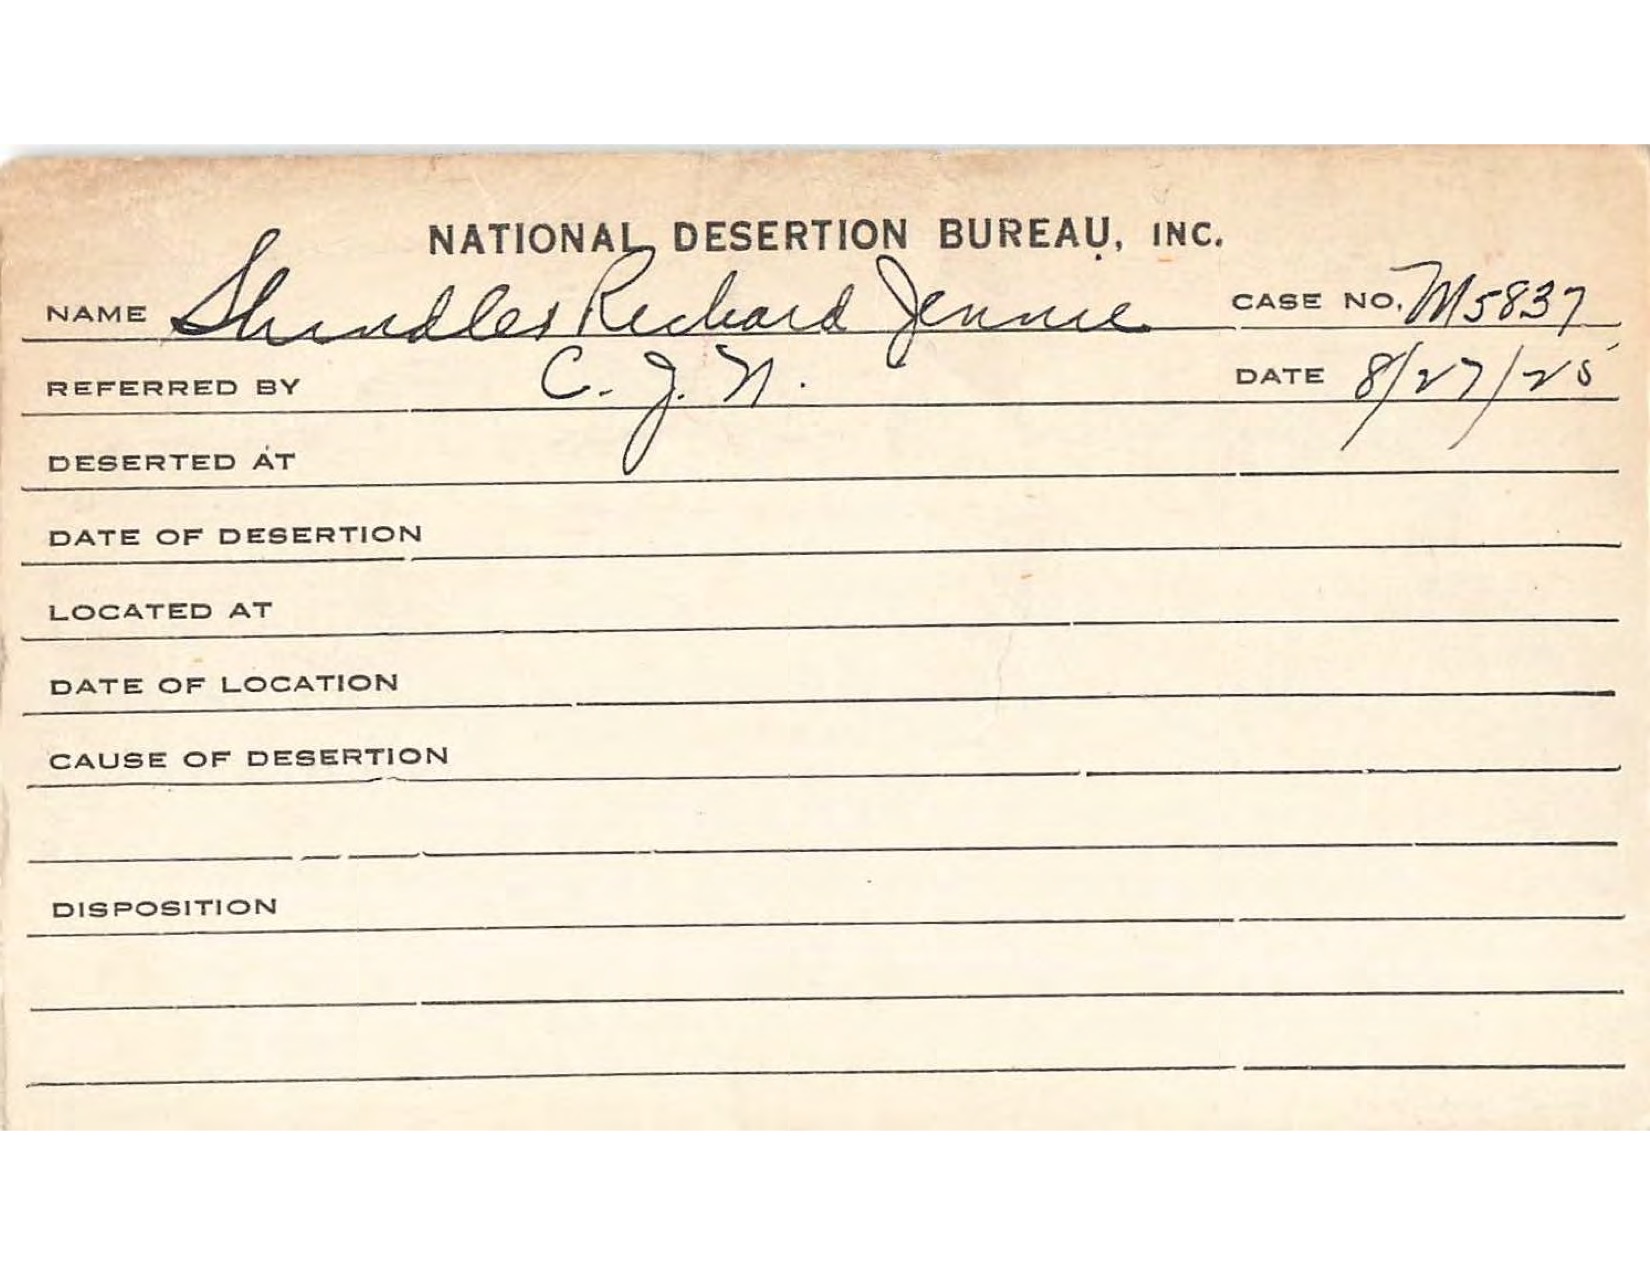 NATIONAL DESERTION BUREAU, INC.
NAME Shindler Richard Jennie CASE NO. M5837
REFERRED BY C. J. N. DATE 8/27/25
DESERTED AT
DATE OF DESERTION
LOCATED AT
DATE OF LOCATION
CAUSE OF DESERTION
DISPOSITION